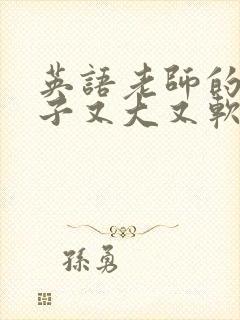 英語老師的
子又大又軟
孫勇